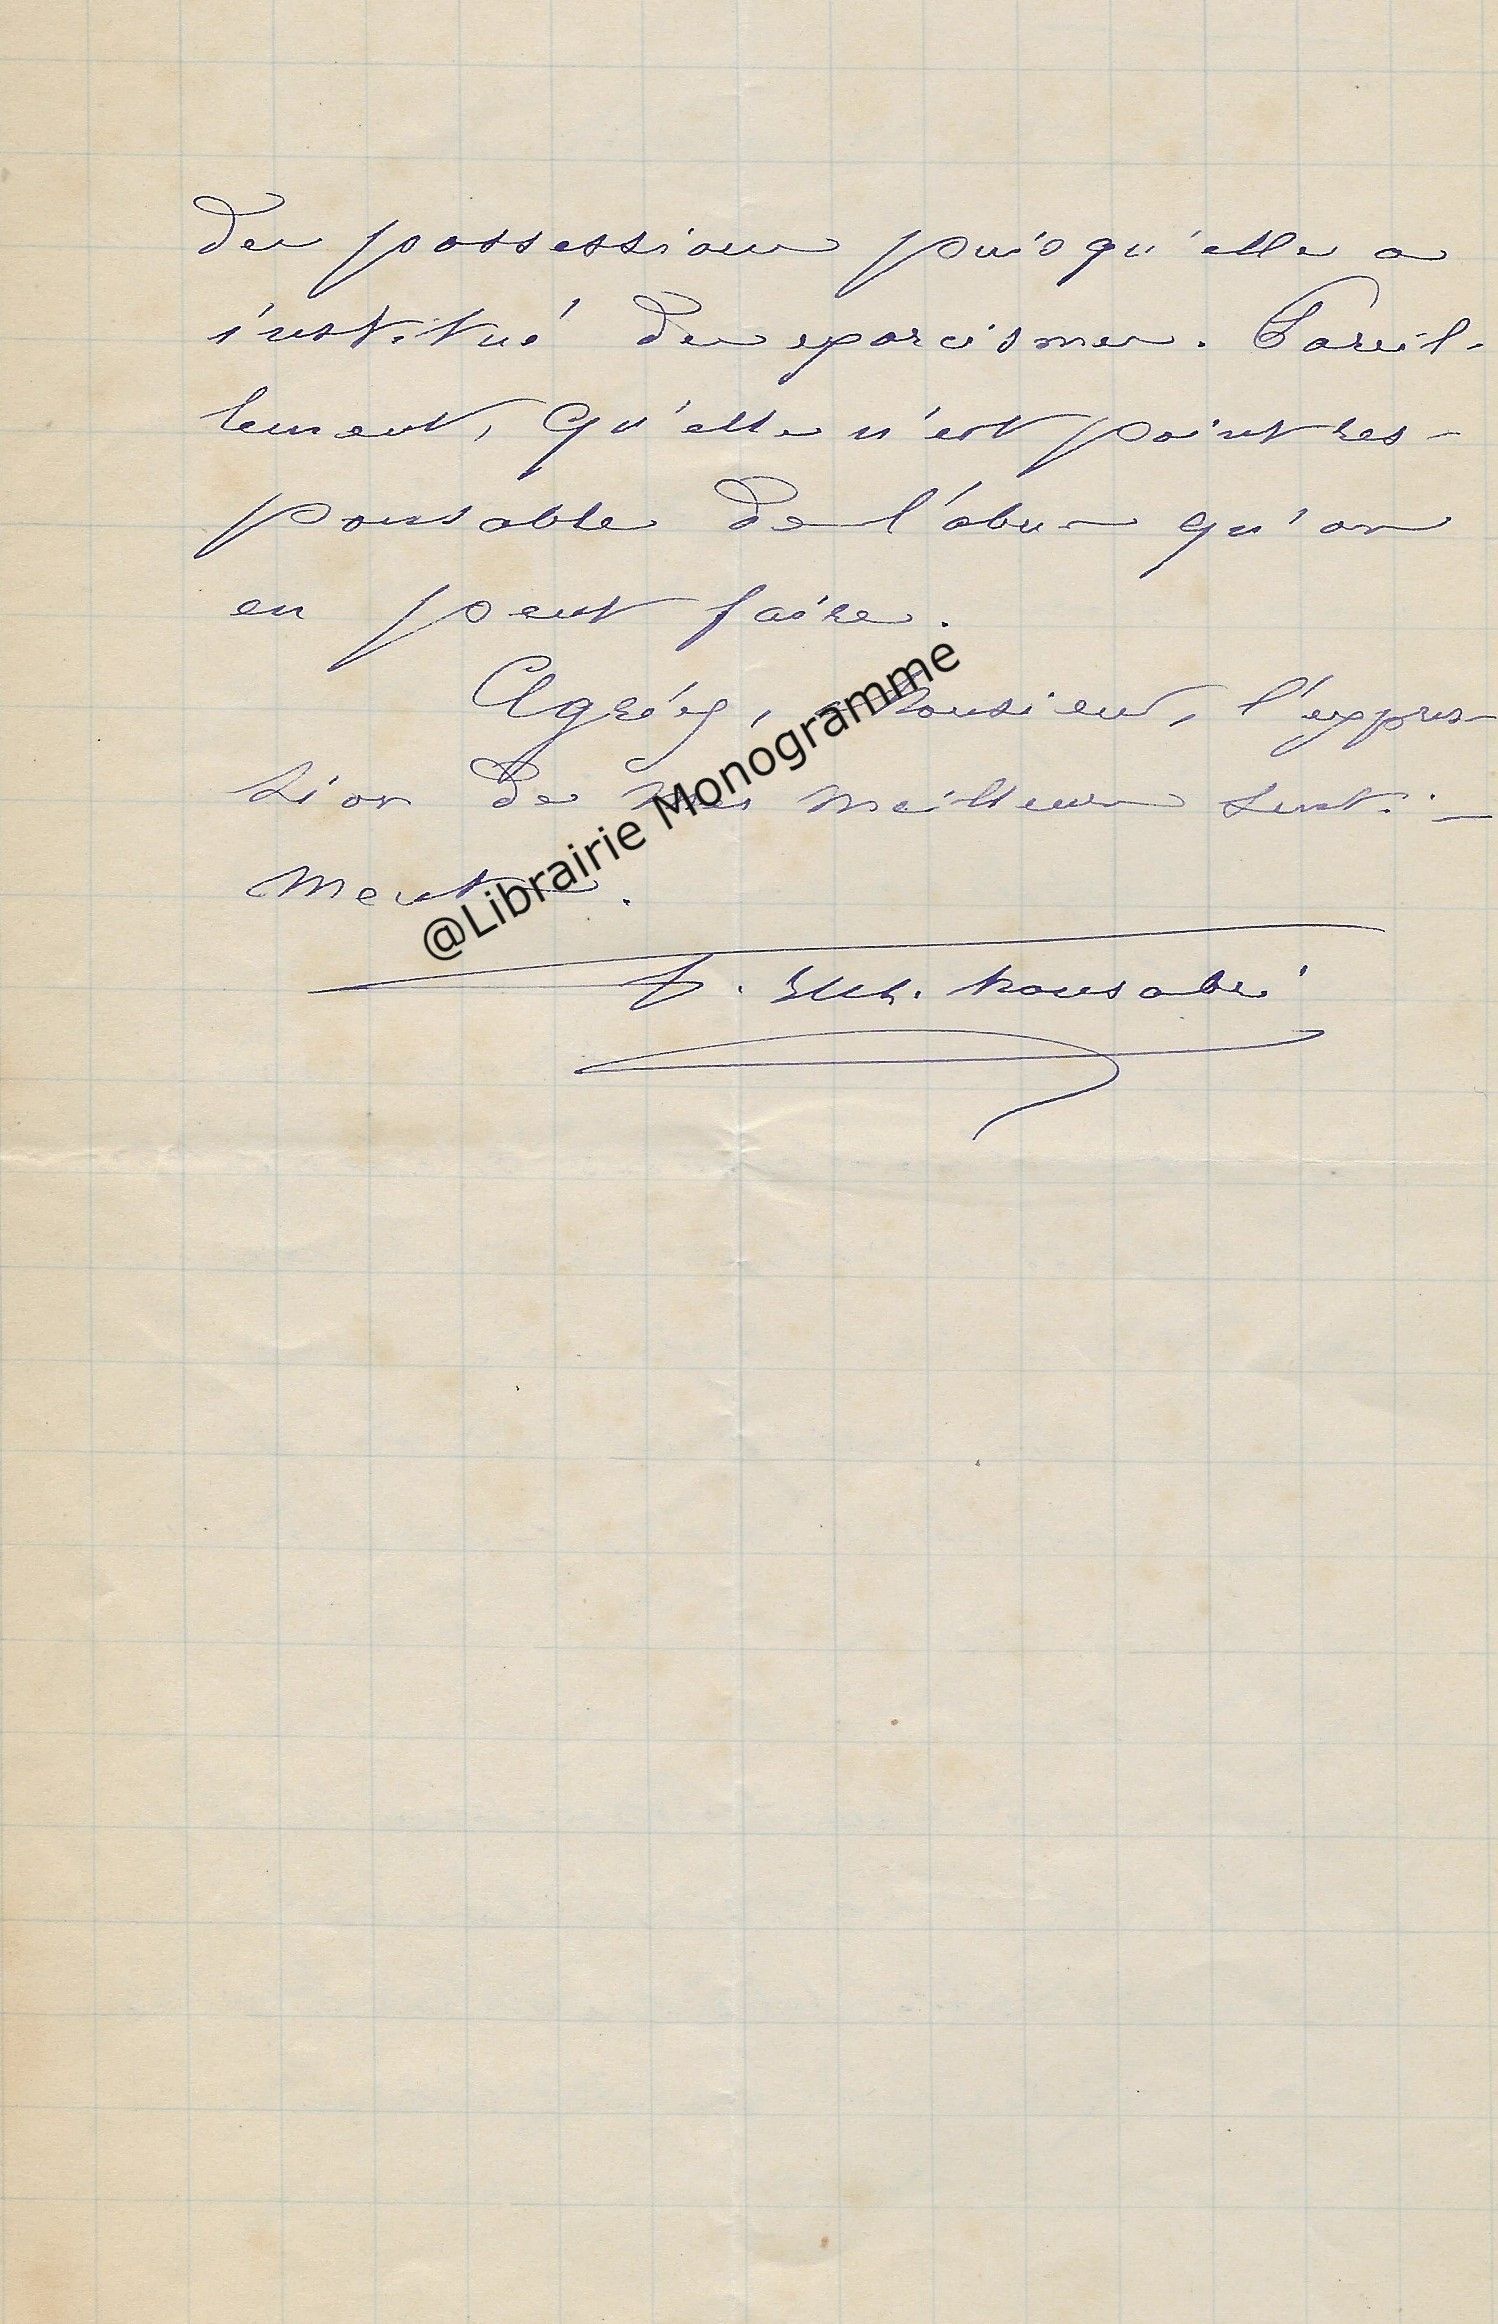 des possessions puisqu'elle a
institué des exorcismes. Pareil-
lement, qu'elle n'est point res-
ponsable de l'abus qu'on
en peut faire.
Agréez, Monsieur, l'expres-
sion de mes meilleurs senti-
ments.
@Librairie Monogramme
f. Monsabré